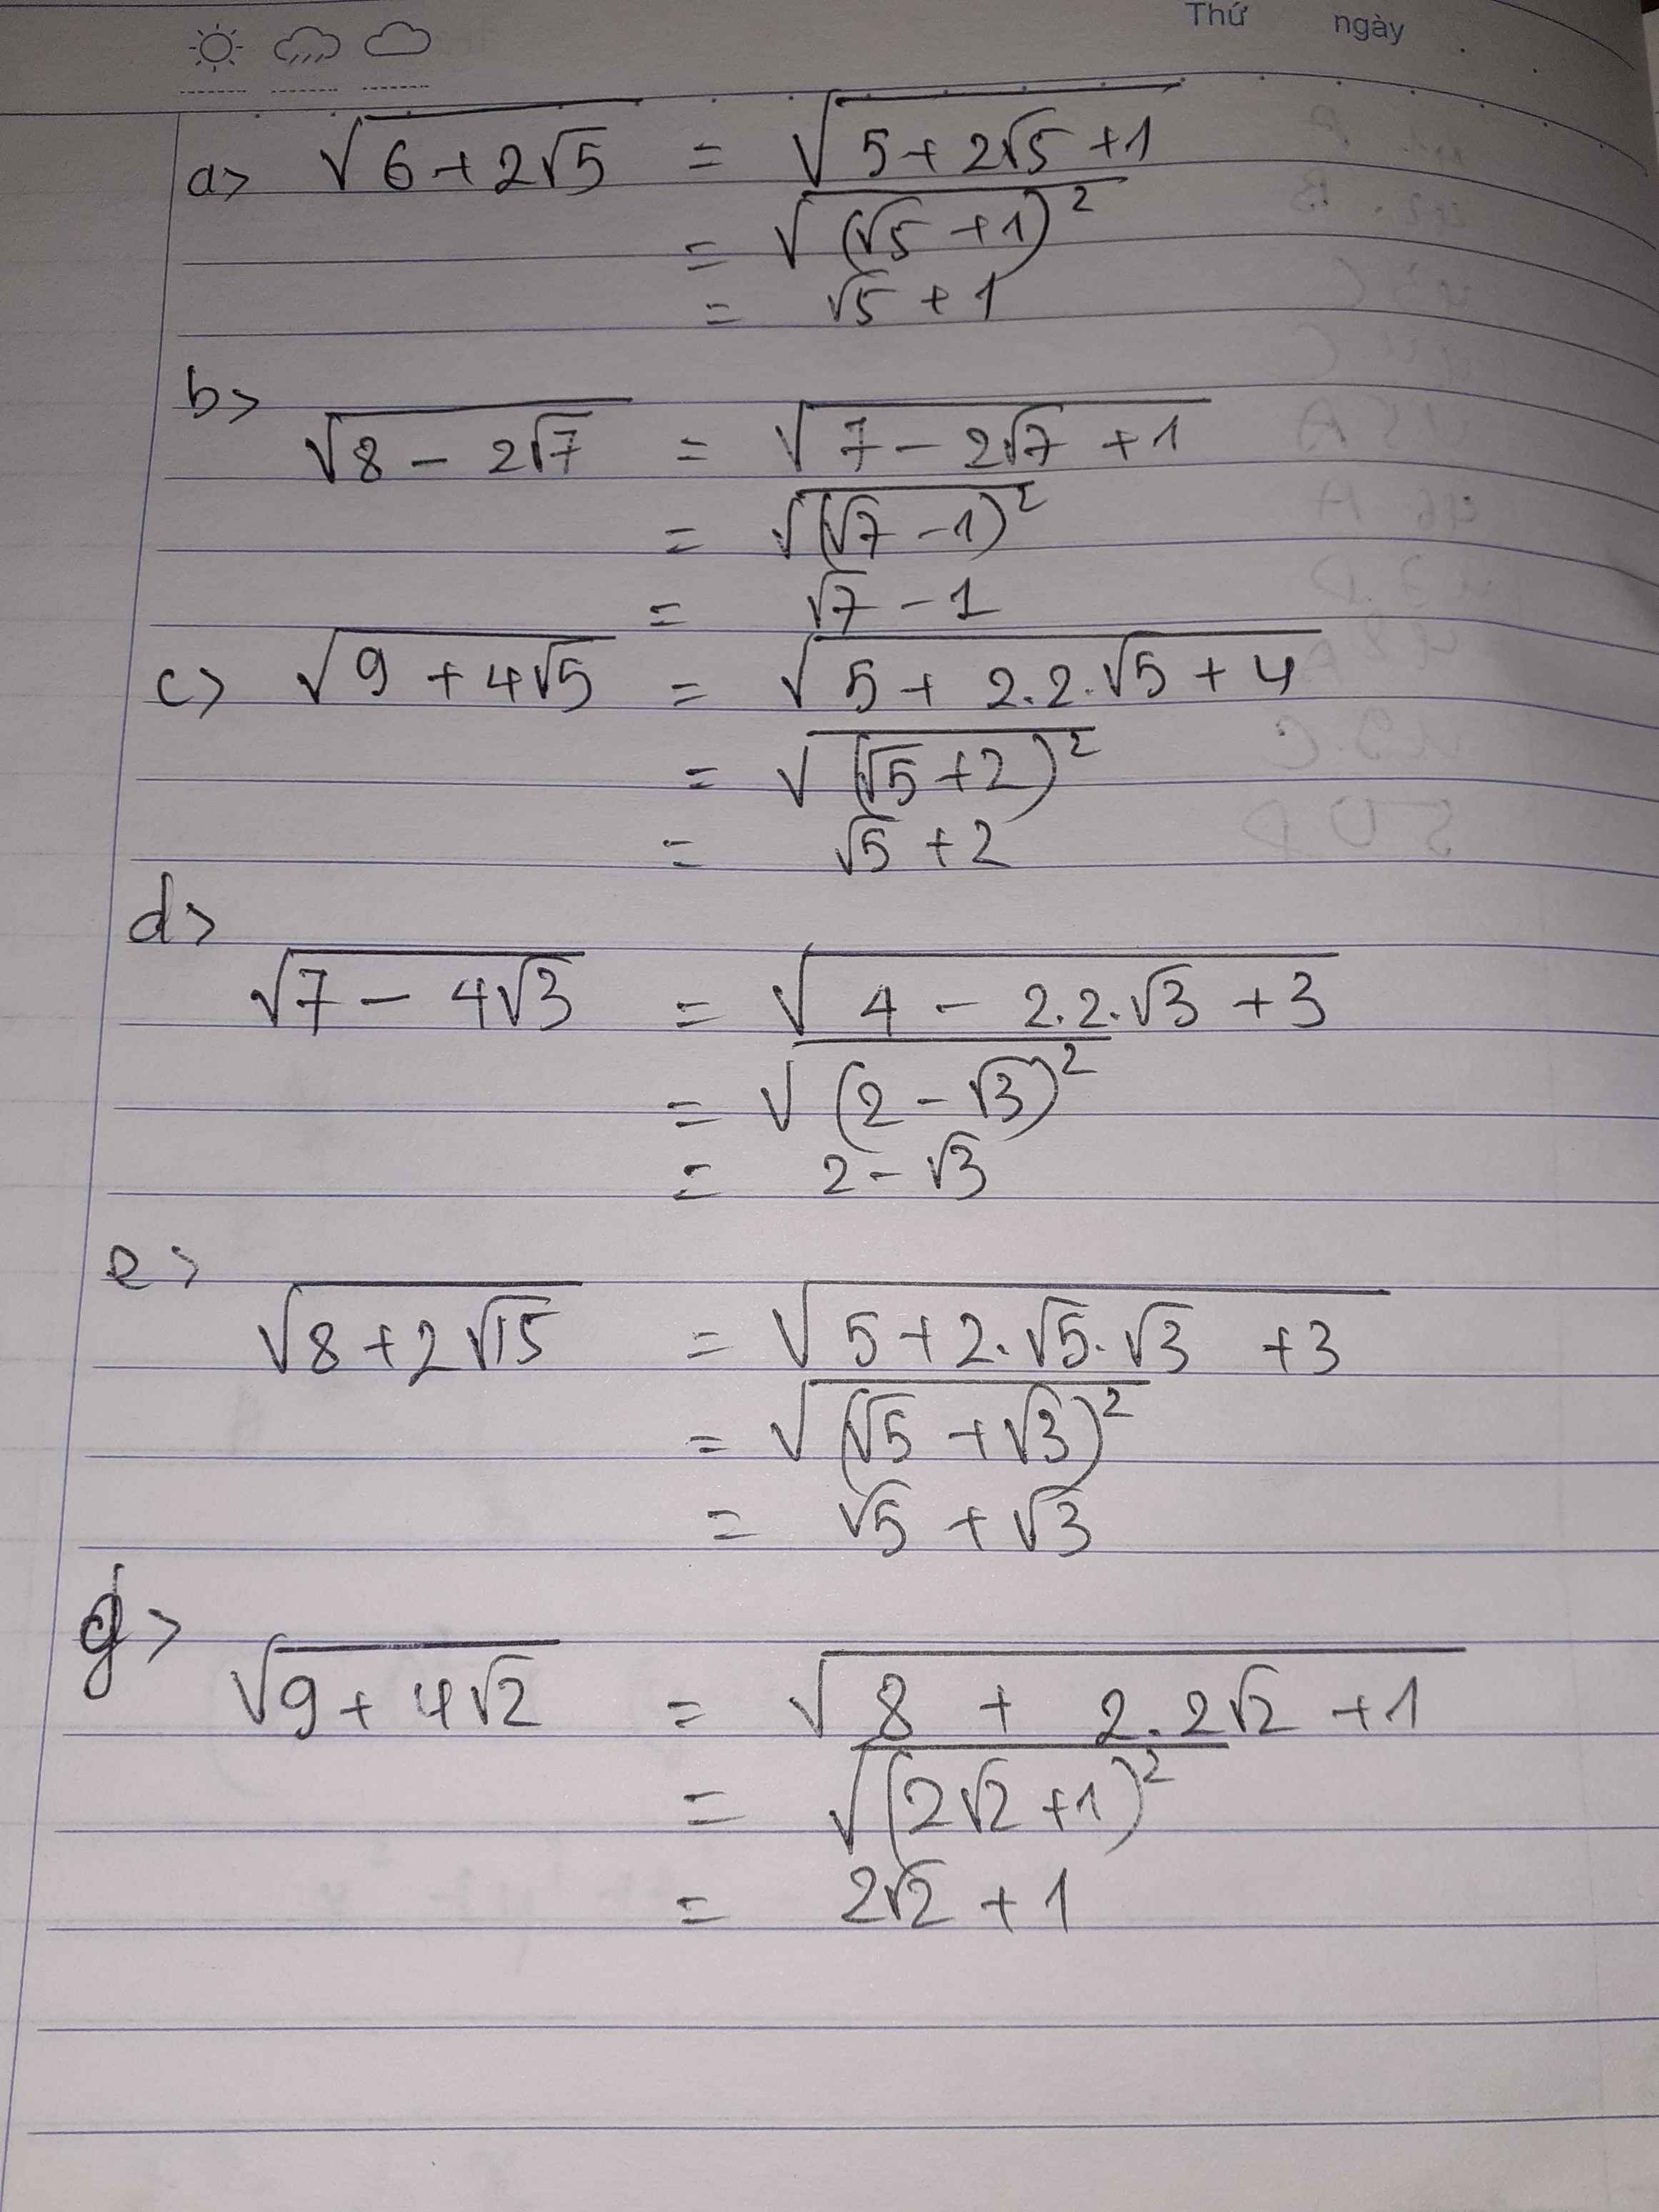 Thứ ngày
a> √(6+2√5) = √(5+2√5+1)
= √((√5+1)²)
= √5+1
b>
√(8-2√7) = √(7-2√7+1)
= √((√7-1)²)
= √7-1
c> √(9+4√5) = √(5+2.2.√5+4)
= √((√5+2)²)
= √5+2
d>
√(7-4√3) = √(4-2.2.√3+3)
= √((2-√3)²)
= 2-√3
e>
√(8+2√15) = √(5+2.√5.√3+3)
= √((√5+√3)²)
= √5+√3
g>
√(9+4√2) = √(8+2.2√2+1)
= √((2√2+1)²)
= 2√2+1